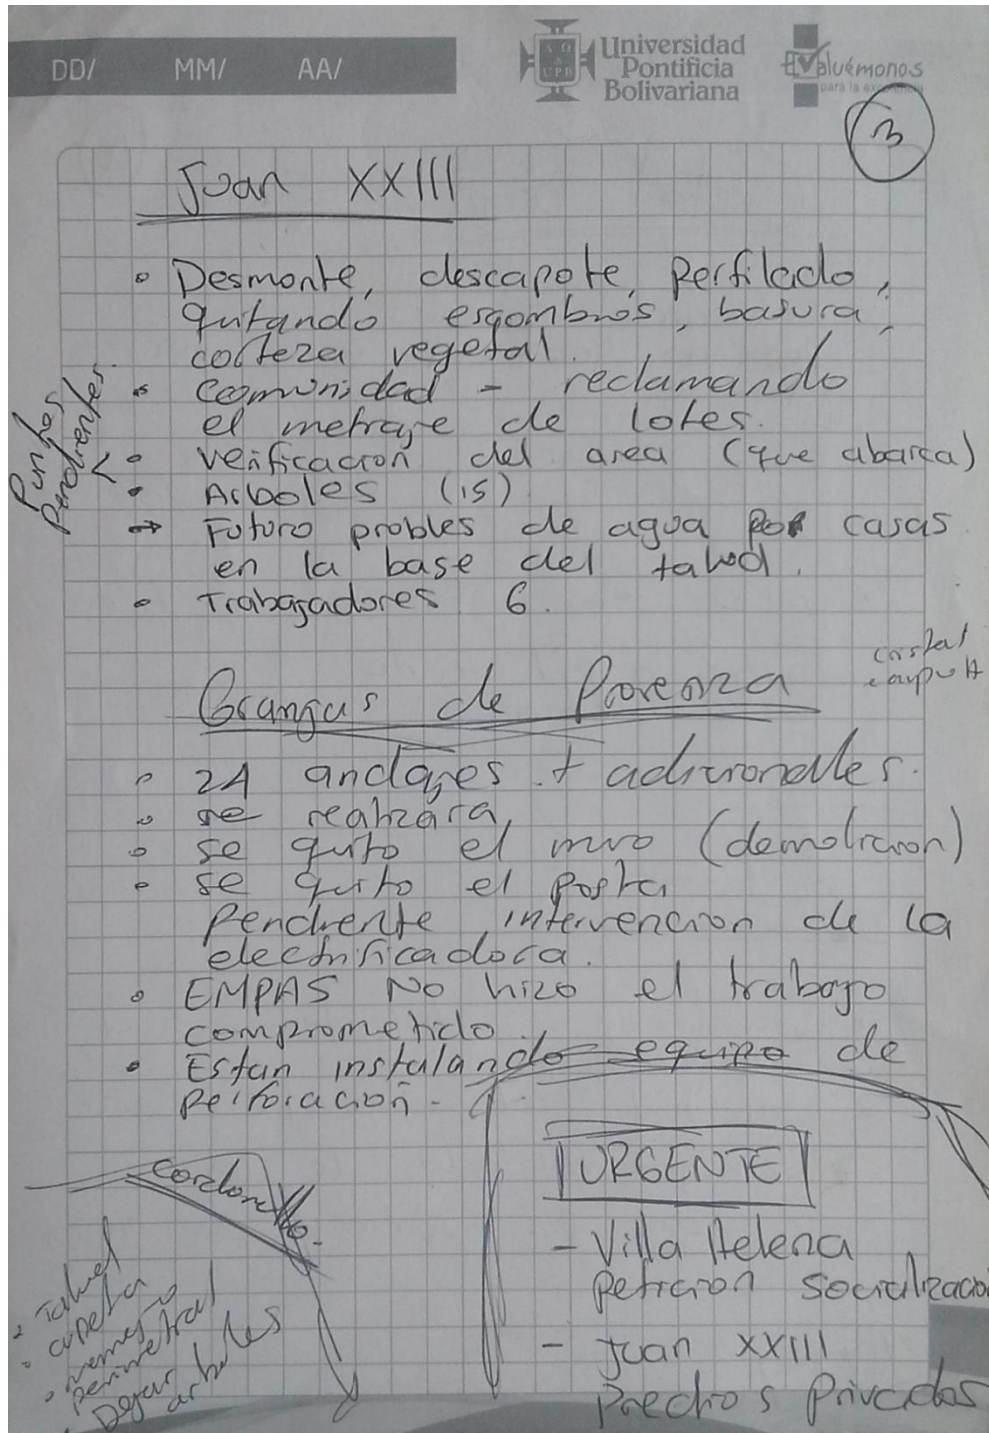 DD/ MM/ AA/
Universidad
Pontificia
Bolivariana
Evaluémonos
para la
3
Juan XXIII
Desmonte, descapote, Perfilado,
quitando escombros, basura,
corteza vegetal.
Comunidad - reclamando
el metraje de lotes.
Puntos
Pendientes
Verificacion del area (que abarca)
Arboles (15)
Futuro probles de agua por casas
en la base del talud.
Trabajadores 6.
Granjas de Provenza
cristal
24 andajes + adicionales.
se realizara
se quito el muro (demolicion)
se quito el Poste
Pendiente intervencion de la
electrificadora.
EMPAS No hizo el trabajo
comprometido
Estan instalando equipo de
perforacion -
Cordoncillo.
Talud
cuneta
perimetral
Dejar arboles
URGENTE
- Villa Helena
Peticion Socializacion
- Juan XXIII
Predios Privados